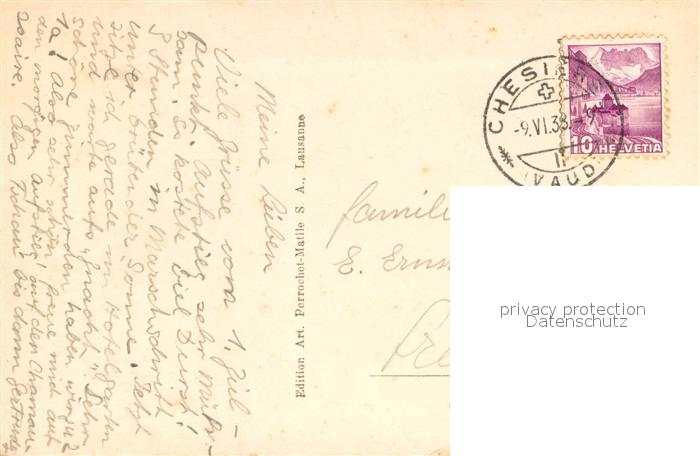 Meine Lieben
Viele Grüsse vom 1. Ziel-
punkt. Aufstieg sehr müh-
sam. Es kostete viel Durst!
5 Stunden im Marschschritt
unter brütender Sonne. Jetzt
sitze ich gerade im Hotelgarten
und warte aufs "Znacht". Sehr
schöne Zimmer haben wir
1a! Also sehr schön freue mich auf
den morgigen Aufstieg auf den Chamau-
saire. Also Tschau bis dann Gertrud
Edition Art. Perrochet-Matile S. A., Lausanne
CHESI
-9.VI.38.-
VAUD
10 HELVETIA
Famili
E.
privacy protection
Datenschutz